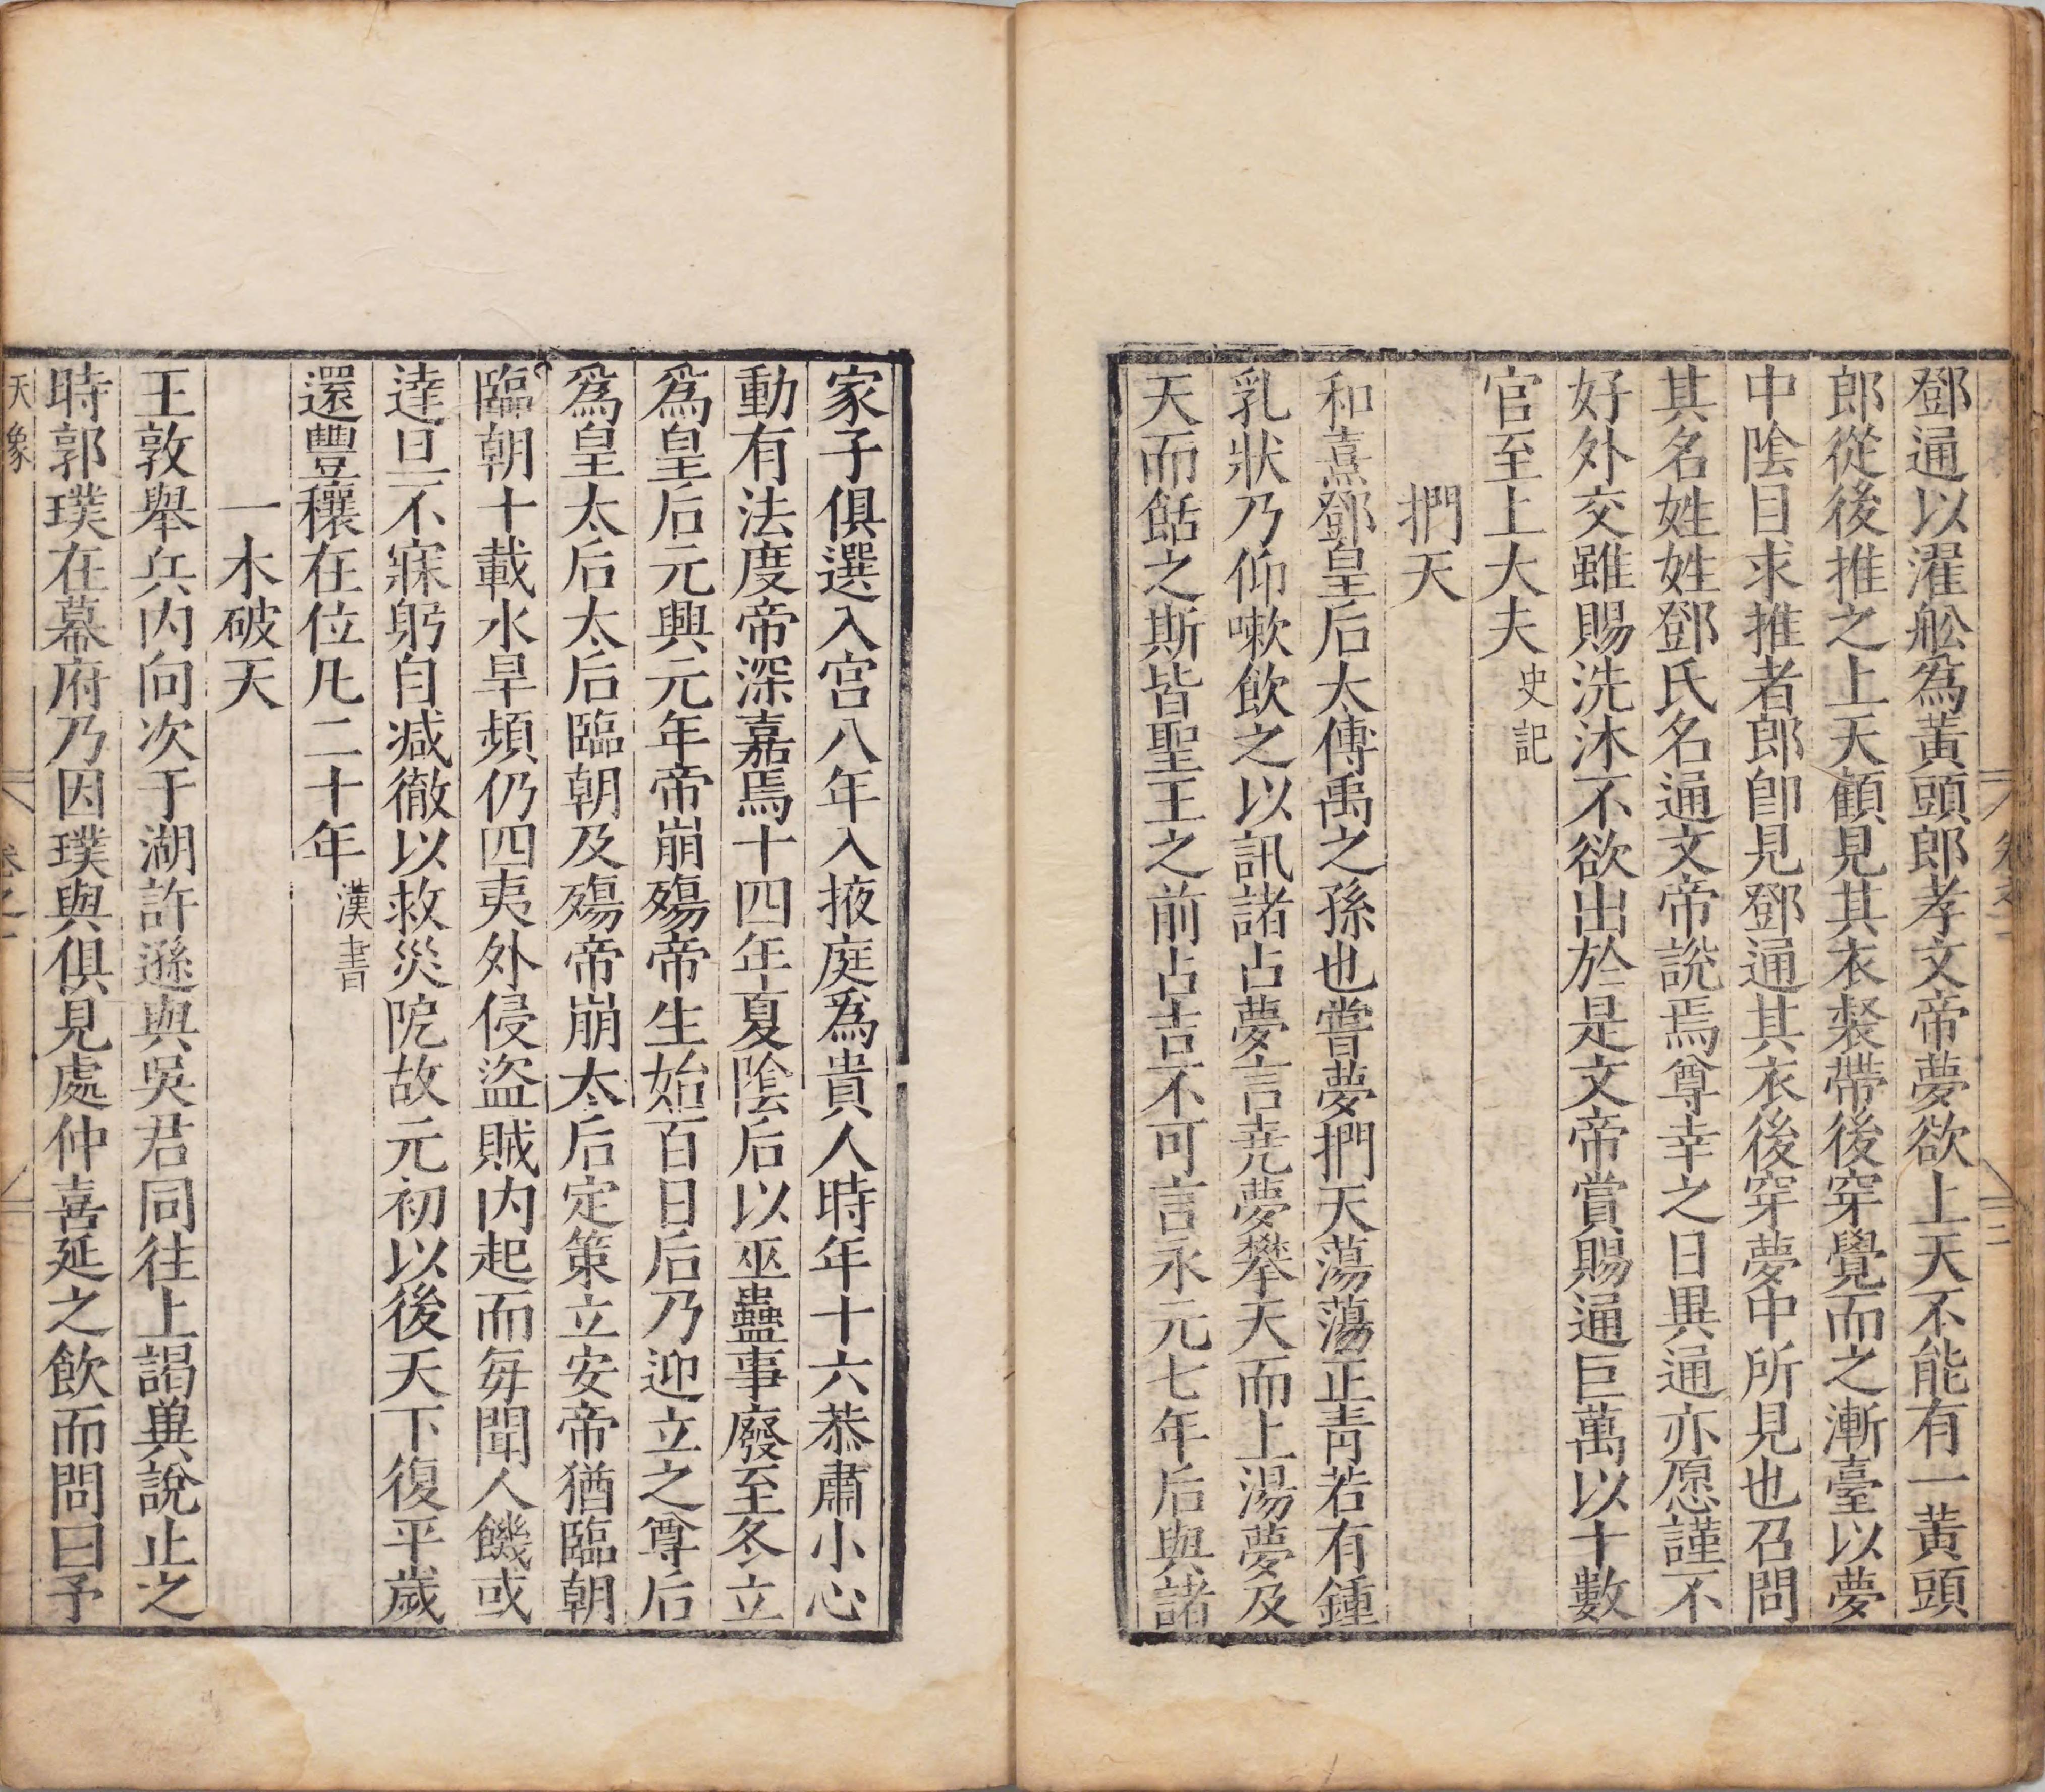 鄧通以濯舩爲黃頭郎孝文帝夢欲上天不能有一黃頭
郎從後推之上天顧見其衣裻帶後穿覺而之漸臺以夢
中陰目求推者郎卽見鄧通其衣後穿夢中所見也召問
其名姓姓鄧氏名通文帝說焉尊幸之日異通亦愿謹不
好外交雖賜洗沐不欲出於是文帝賞賜通巨萬以十數
官至上大夫史記
捫天
和熹鄧皇后太傅禹之孫也嘗夢捫天蕩蕩正青若有鍾
乳狀乃仰嗽飲之以訊諸占夢言堯夢攀天而上湯夢及
天而䑛之斯皆聖王之前占吉不可言永元七年后與諸
家子俱選入宮八年入掖庭爲貴人時年十六恭肅小心
動有法度帝深嘉焉十四年夏陰后以巫蠱事廢至冬立
爲皇后元興元年帝崩殤帝生始百日后乃迎立之尊后
爲皇太后太后臨朝及殤帝崩太后定策立安帝猶臨朝
臨朝十載水旱頻仍四夷外侵盜賊内起而每聞人饑或
達旦不寐躬自减徹以救災阨故元初以後天下復平歲
還豐穰在位凡二十年漢書
一木破天
王敦舉兵内向次于湖許遜與吳君同往上謁兾說止之
時郭璞在幕府乃因璞與俱見處仲喜延之飲而問曰予
天象
卷之一